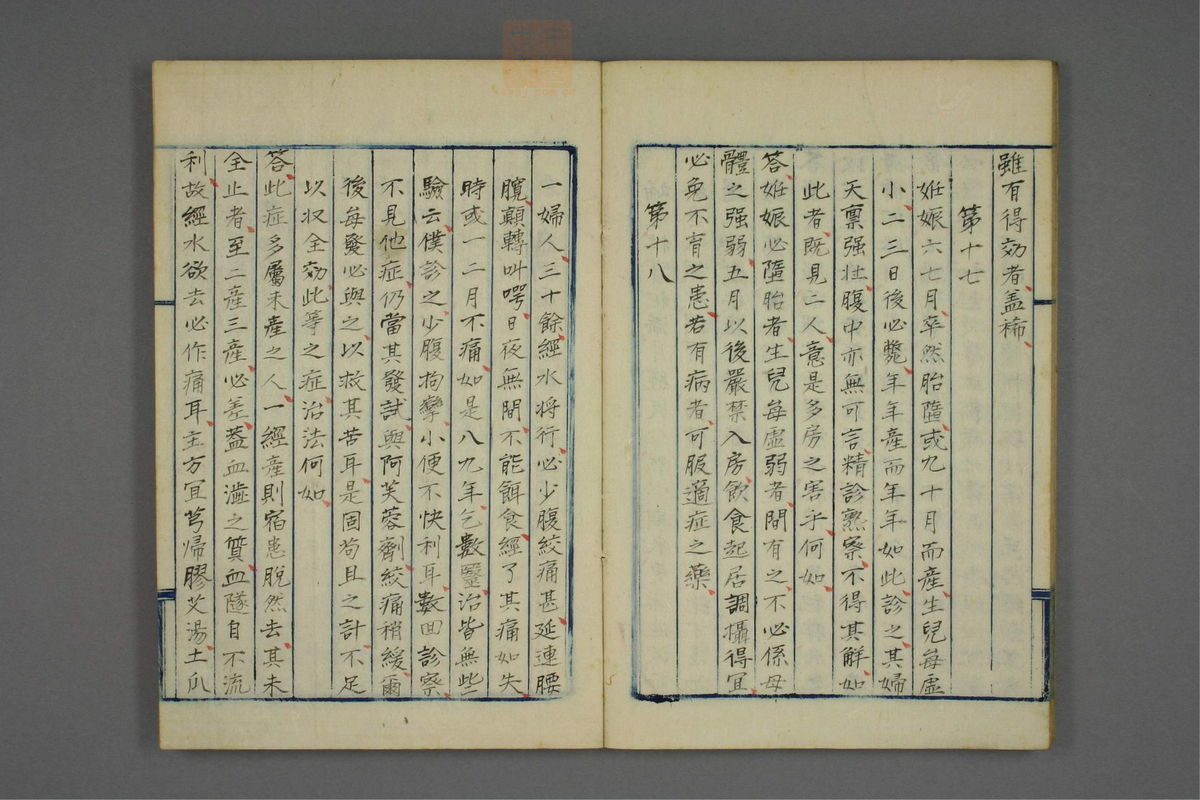 雖有得効者蓋稀
第十七
妊娠六七月卒然胎墮或九十月而產生兒每虛
小二三日後必斃年年產而年年如此診之其婦
天稟强壯腹中亦無可言精診熟察不得其解如
此者既見二人意是多房之害乎何如
答妊娠必墮胎者生兒每虛弱者間有之不必係母
體之强弱五月以後嚴禁入房飲食起居調攝得宜
必免不育之患若有病者可服適症之藥
第十八
一婦人三十餘經水將行必少腹絞痛甚延連腰
臗顛轉叫咢日夜無間不能餌食經了其痛如失
時或一二月不痛如是八九年乞數醫治皆無些
驗云僕診之少腹拘攣小便不快利耳數回診察
不見他症仍當其發試與阿芙蓉劑絞痛稍緩爾
後每發必與之以救其苦耳是固苟且之計不足
以収全効此等之症治法何如
答此症多屬未產之人一經產則宿患脫然去其未
全止者至二產三產必差蓋血澁之質血隧自不流
利故經水欲去必作痛耳主方宜芎歸膠艾湯土瓜